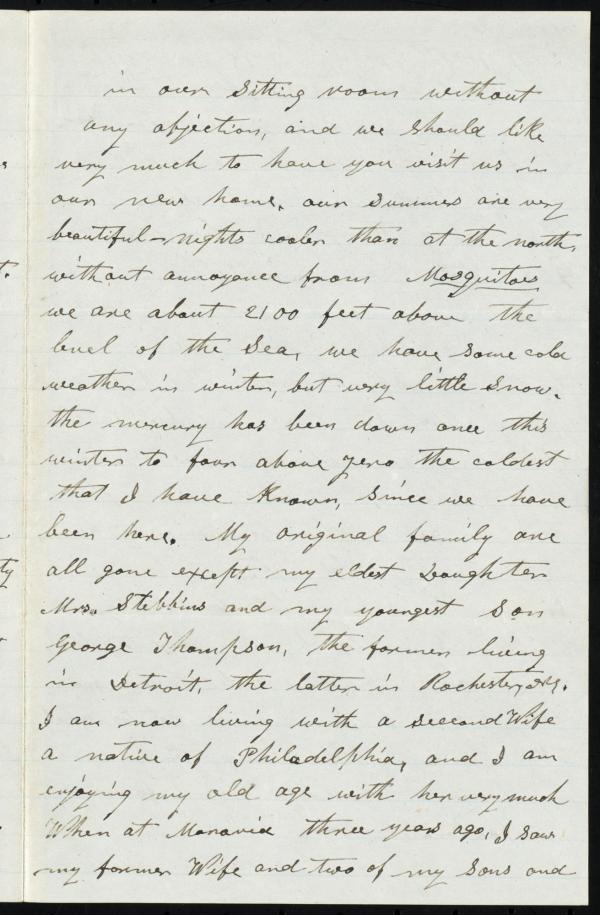 in our Sitting room without
any objection, and we should like
very much to have you visit us in
our new home. our Summers are very
beautiful - nights cooler than at the north,
without annoyance from Mosquitoes
we are about 2100 feet above the
level of the Sea, we have some cold
weather in winter, but very little Snow.
the mercury has been down once this
winter to four above zero the coldest
that I have Known, Since we have
been here. My original family are
all gone except my eldest Daughter
Mrs. Stebbins and my youngest Son
George Thompson, the former living
in Detroit, the latter in Rochester, N.Y.
I am now living with a seccond Wife
a native of Philadelphia, and I am
enjoying my old age with her very much
When at Moravia three years ago, I saw
my former Wife and two of my Sons and